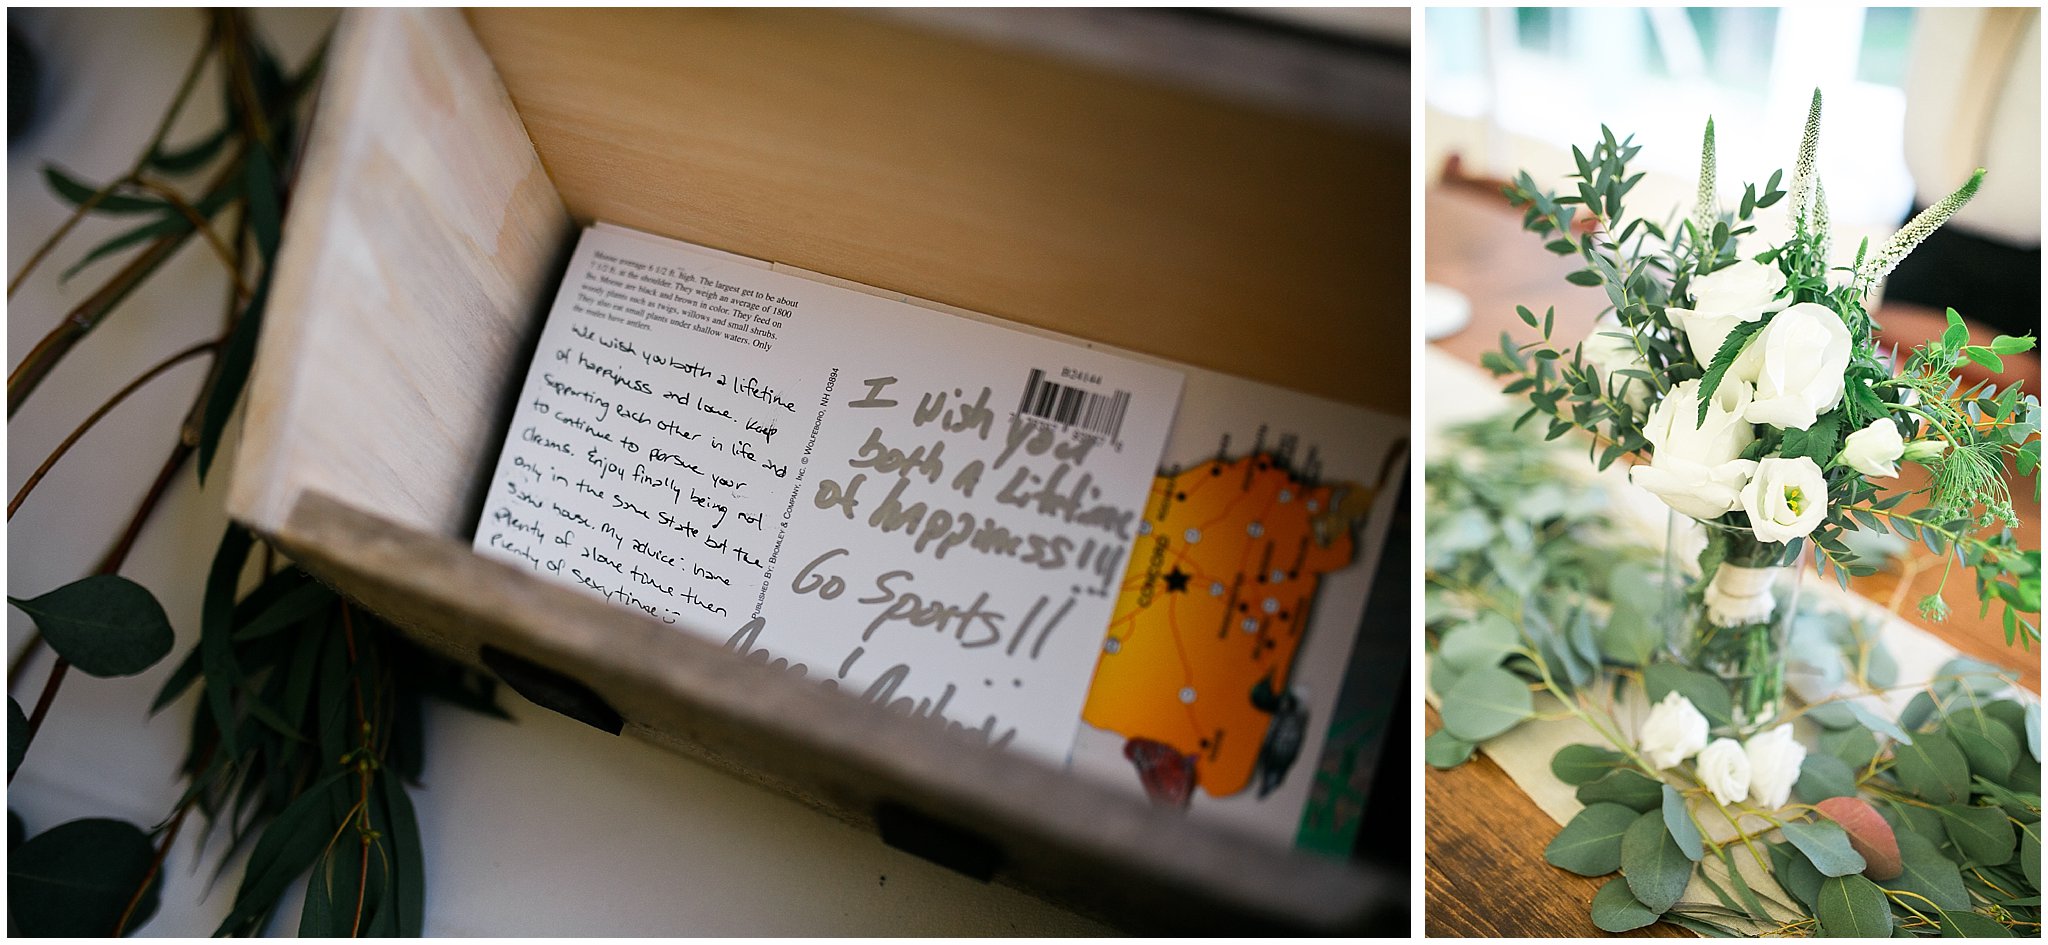 Moose average 6 1/2 ft. high. The largest get to be about
7 1/2 ft. at the shoulder. They weigh an average of 1800
lbs. Moose are black and brown in color. They feed on
woody plants such as twigs, willows and small shrubs.
They also eat small plants under shallow waters. Only
the males have antlers.
We wish you both a lifetime
of happiness and love. Keep
supporting each other in life and
to continue to pursue your
dreams. Enjoy finally being not
only in the same state but the
same house. My advice: have
plenty of alone time then
plenty of sexytime
PUBLISHED BY: BROMLEY & COMPANY, INC. © WOLFEBORO, NH 03894
BI24144
I wish you
both A Lifetime
of happiness!!!
Go Sports!!
CONCORD